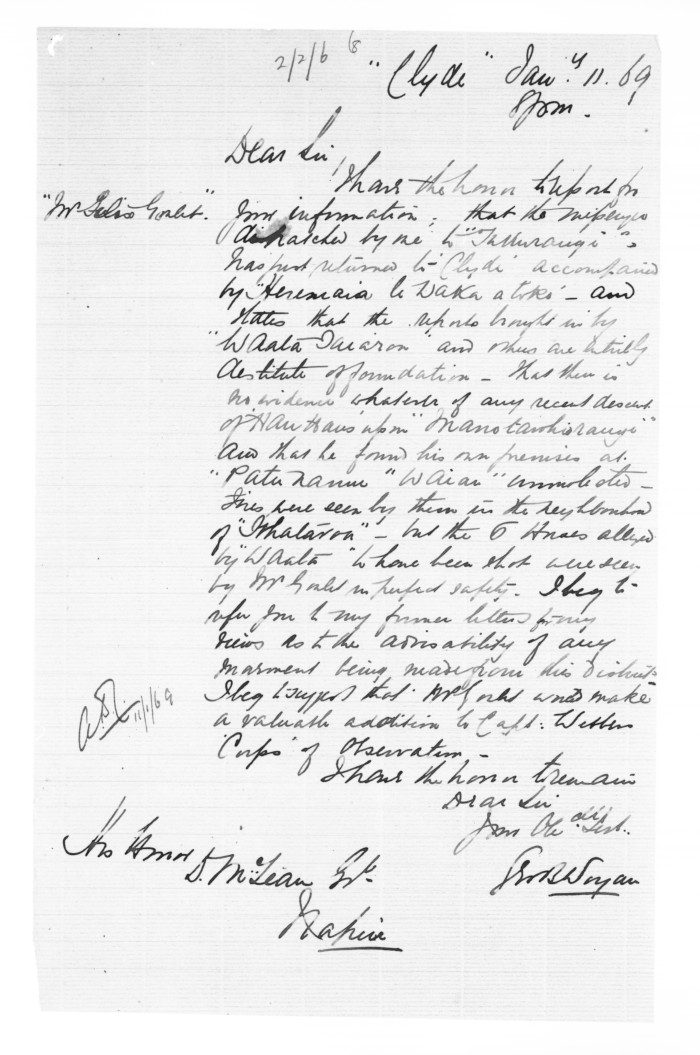 2/2/6 8
"Clyde" Jany. 11. 69
8 pm.
Dear Sir,
I have the honor to report for
"Mr Felix Goulet".
your information, that the messenger
dispatched by me, to "Tukurangi" -
has just returned to 'Clyde' accompanied
by "Heremaia te Waka atoko" - and
states that the reports brought in by
"Waata Taiaroa" and others are entirely
destitute of foundation - that there is
no evidence whatever of any recent descent
of "Hau Haus" upon
and that he found his own premises at
"Patu namu" "Waiau" unmolested -
Fires were seen by them in the neighbourhood
of "Whataroa" - but the 6 Horses alleged
by "Waata" to have been shot were seen
by Mr Goulet in perfect safety. I beg to
refer you to my former letters for my
views as to the advisability of any
movement being made from this District
I beg to suggest that Mr Goulet would make
a valuable addition to Capt: Withers
'Corps' of Observation -
11/1/69
I have the honor to remain
Dear Sir
Your Obedt Servt.
His Honor
D. McLean Esq
Geo B Worgan
Napier